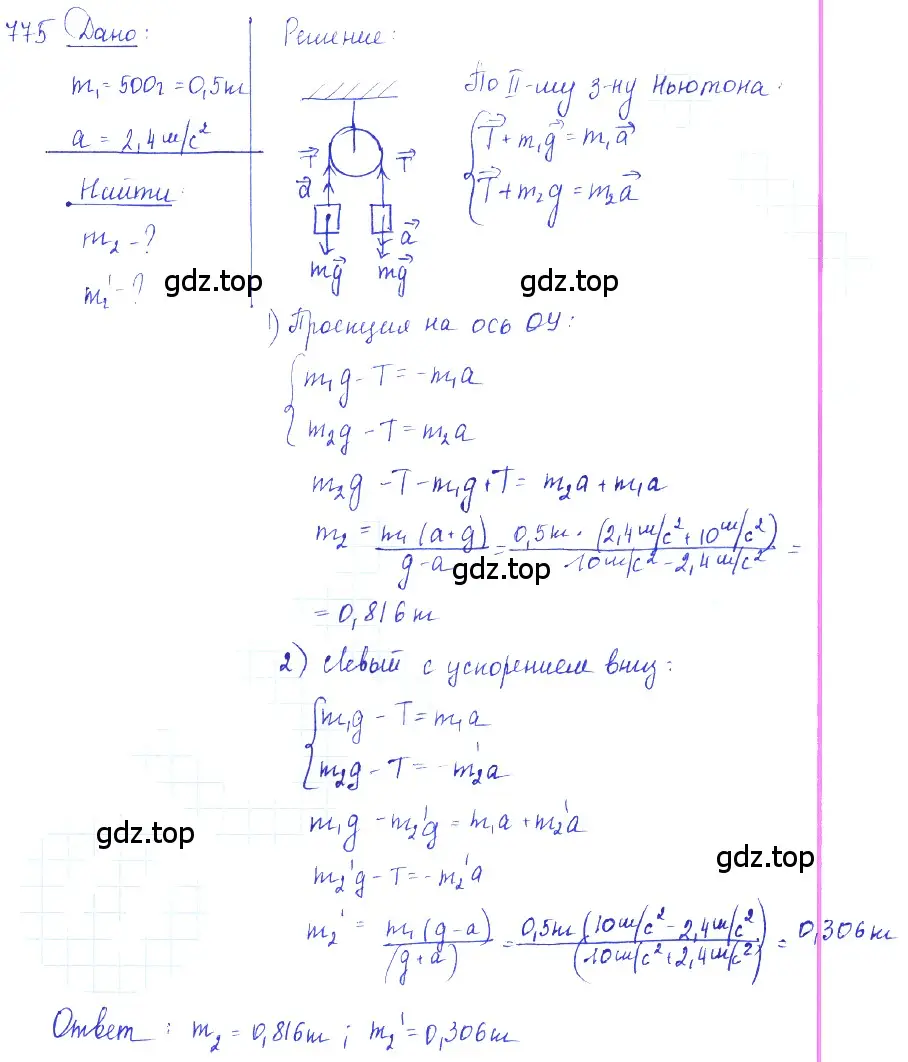 775 Дано:
m₁ = 500г = 0,5кг
a = 2,4м/с²
Найти:
m₂ - ?
m₂' - ?
Решение:
T⃗ T⃗
a⃗
a⃗
mg⃗ mg⃗
По II-му з-ну Ньютона:
T⃗ + m₁g⃗ = m₁a⃗
T⃗ + m₂g = m₂a⃗
gdz.top gdz.top
1) Проекция на ось ОУ:
m₁g - T = -m₁a
m₂g - T = m₂a
m₂g - T - m₁g + T = m₂a + m₁a
m₂ = m₁(a+g)/(g-a) = 0,5кг · (2,4м/с² + 10м/с²)/(10м/с² - 2,4м/с²) =
gdz.top
= 0,816кг
2) Левый с ускорением вниз:
m₁g - T = m₁a
m₂g - T = -m₂'a
m₁g - m₂'g = m₁a + m₂'a
gdz.top
m₂'g - T = -m₂'a
gdz.top
m₂' = m₁(g-a)/(g+a) = 0,5кг(10м/с² - 2,4м/с²)/(10м/с² + 2,4м/с²) = 0,306кг
Ответ: m₂ = 0,816кг; m₂' = 0,306кг